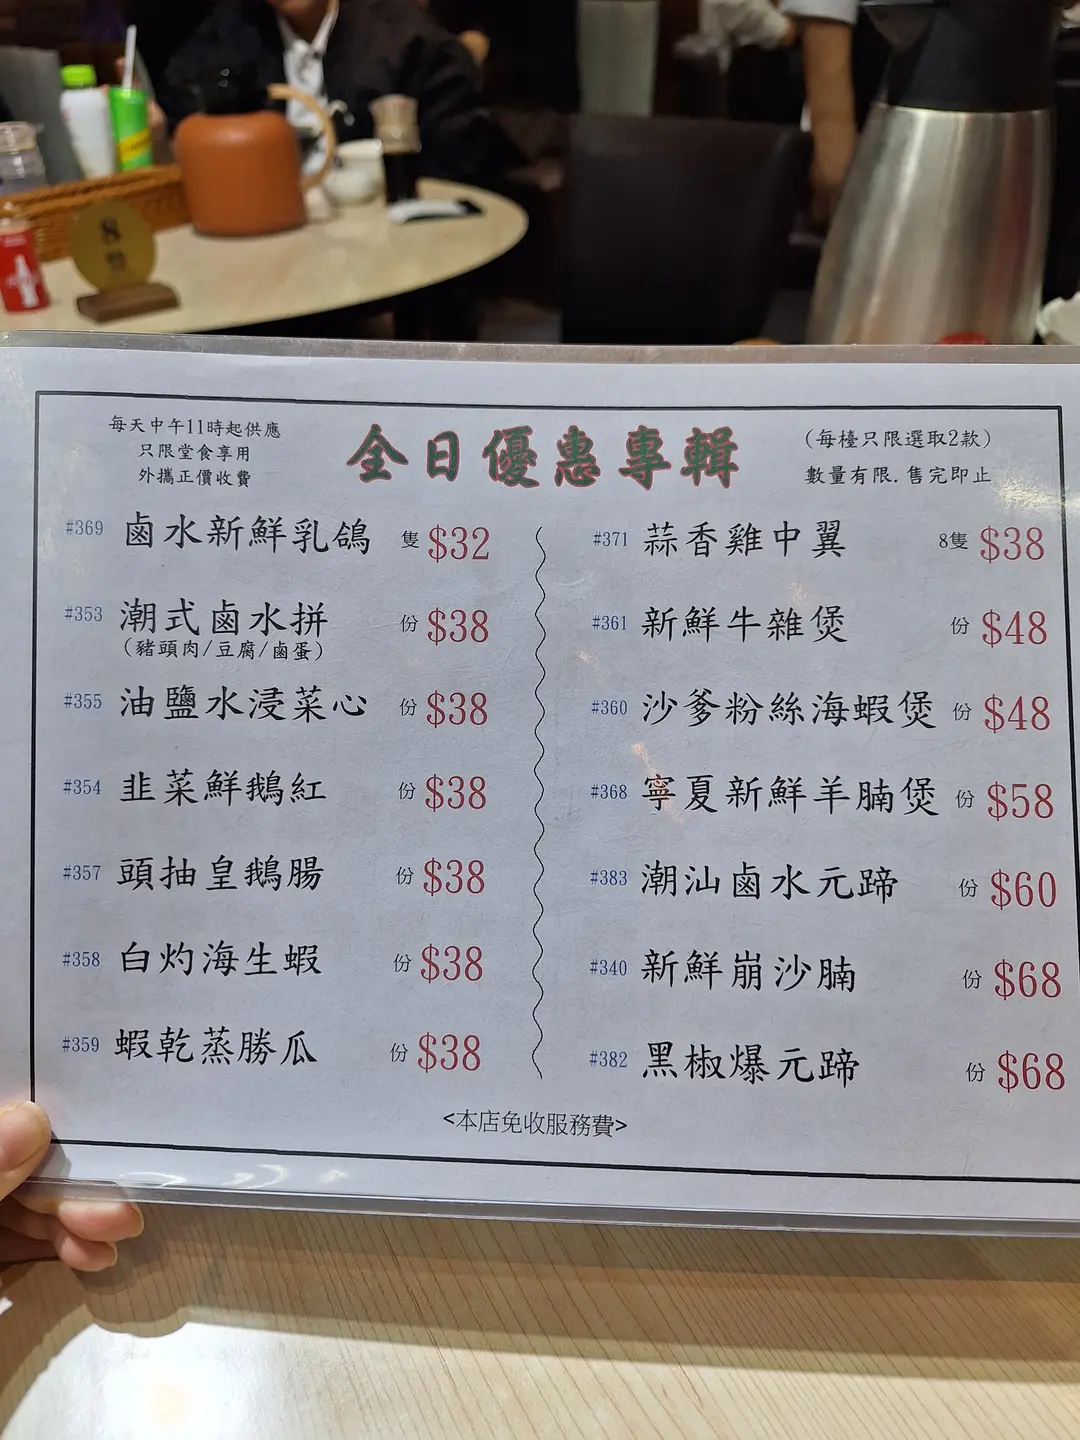 每天中午11時起供應
只限堂食享用
外攜正價收費
全日優惠專輯
(每檯只限選取2款)
數量有限.售完即止
#369 鹵水新鮮乳鴿 隻 $32
#353 潮式鹵水拼 份 $38
(豬頭肉/豆腐/鹵蛋)
#355 油鹽水浸菜心 份 $38
#354 韭菜鮮鵝紅 份 $38
#357 頭抽皇鵝腸 份 $38
#358 白灼海生蝦 份 $38
#359 蝦乾蒸勝瓜 份 $38
#371 蒜香雞中翼 8隻 $38
#361 新鮮牛雜煲 份 $48
#360 沙爹粉絲海蝦煲 份 $48
#368 寧夏新鮮羊腩煲 份 $58
#383 潮汕鹵水元蹄 份 $60
#340 新鮮崩沙腩 份 $68
#382 黑椒爆元蹄 份 $68
<本店免收服務費>